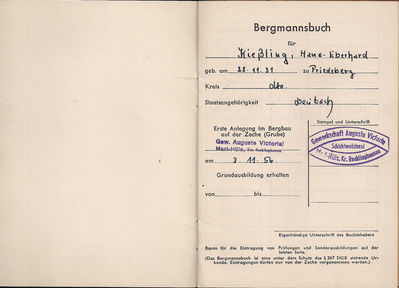 Bergmannsbuch
für
Kießling, Hans-Eberhard
geb. am 28.11.31 zu Friedeberg
Kreis dto.
Staatsangehörigkeit Deutsch
Erste Anlegung im Bergbau
auf der Zeche (Grube)
Gew. Auguste Victoria
Marl-Hüls, Krs. Recklinghausen
am 3.11.56
Grundausbildung erhalten
von bis
Stempel und Unterschrift
Gewerkschaft Auguste Victoria
Schichtmeisterei
Marl-Hüls, Kr. Recklinghausen
Eigenhändige Unterschrift des Buchinhabers
Raum für die Eintragung von Prüfungen und Sonderausbildungen auf der
letzten Seite.
(Das Bergmannsbuch ist eine unter dem Schutz des § 267 StGB stehende Ur-
kunde. Eintragungen dürfen nur von der Zeche vorgenommen werden.)